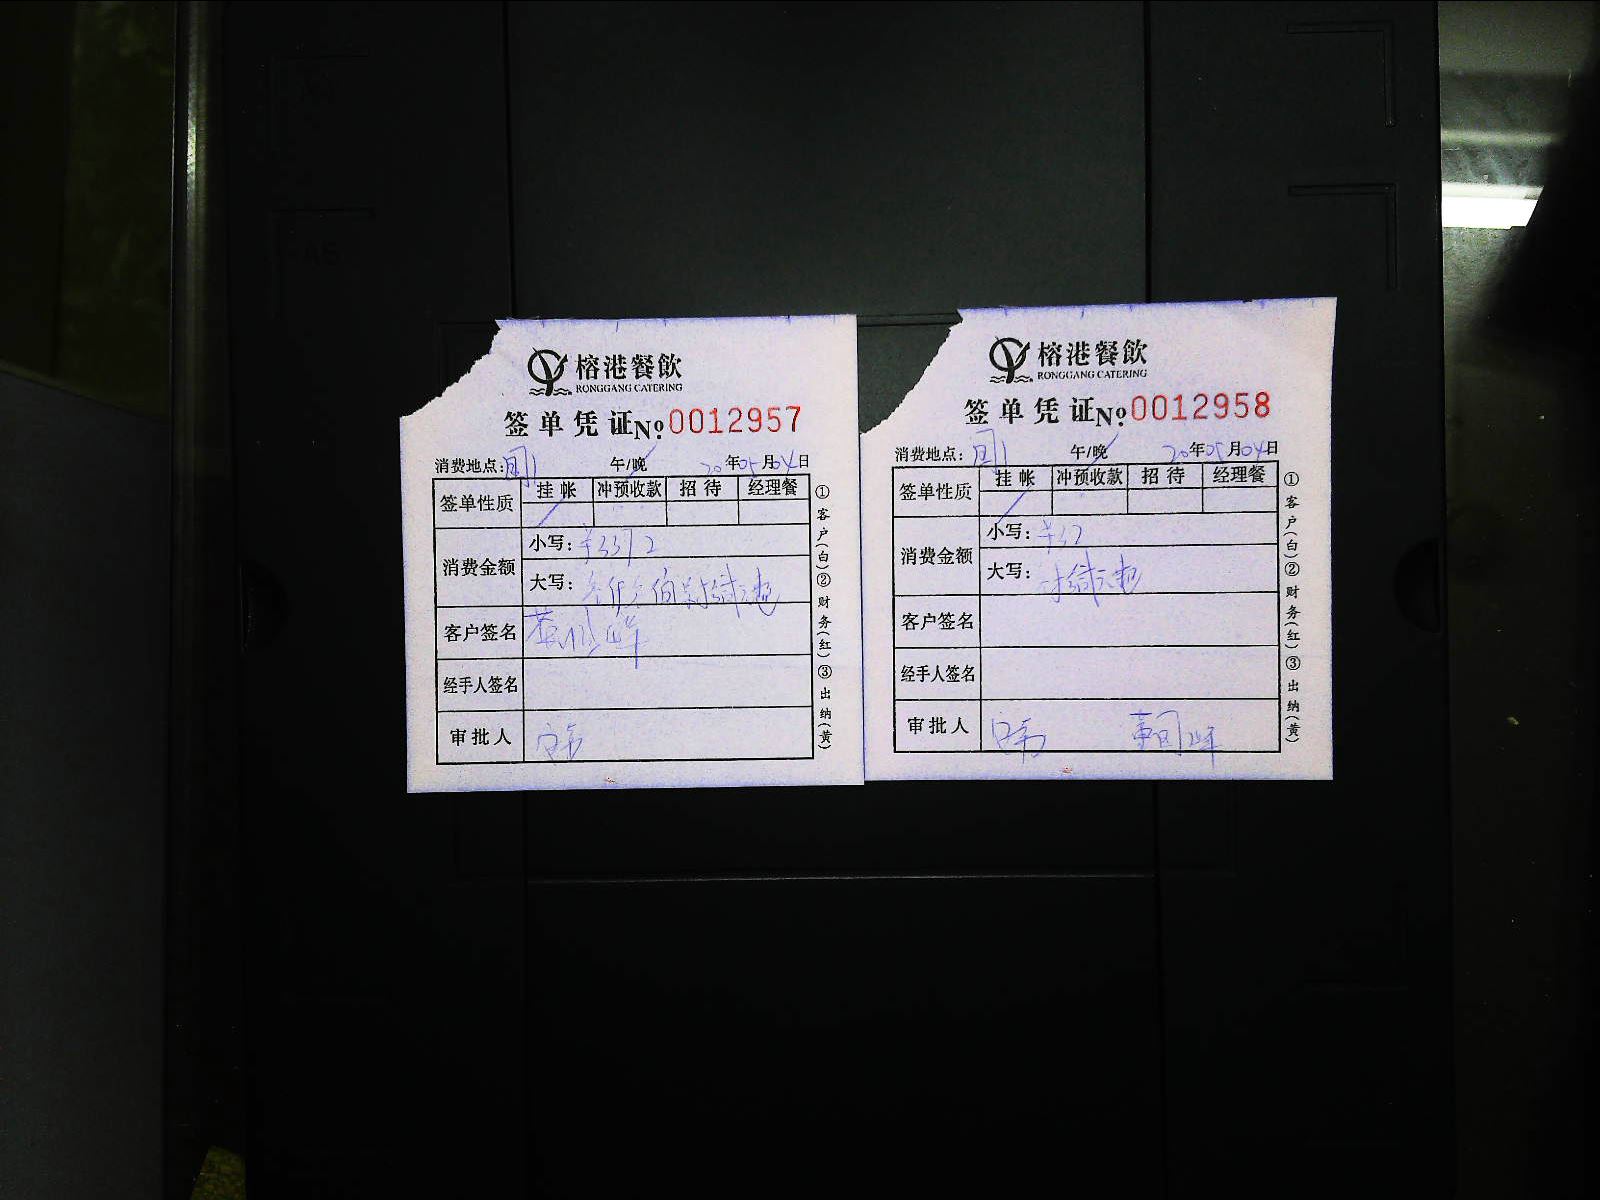 榕港餐飲
RONGGANG CATERING
签单凭证No.0012957
消费地点: 午/晚 20年05月04日
签单性质 挂帐 冲预收款 招待 经理餐
消费金额 小写:
大写:
客户签名
经手人签名
审批人
①客户(白)②财务(红)③出纳(黄)
榕港餐飲
RONGGANG CATERING
签单凭证No.0012958
消费地点: 午/晚 20年05月04日
签单性质 挂帐 冲预收款 招待 经理餐
消费金额 小写:
大写:
客户签名
经手人签名
审批人
①客户(白)②财务(红)③出纳(黄)